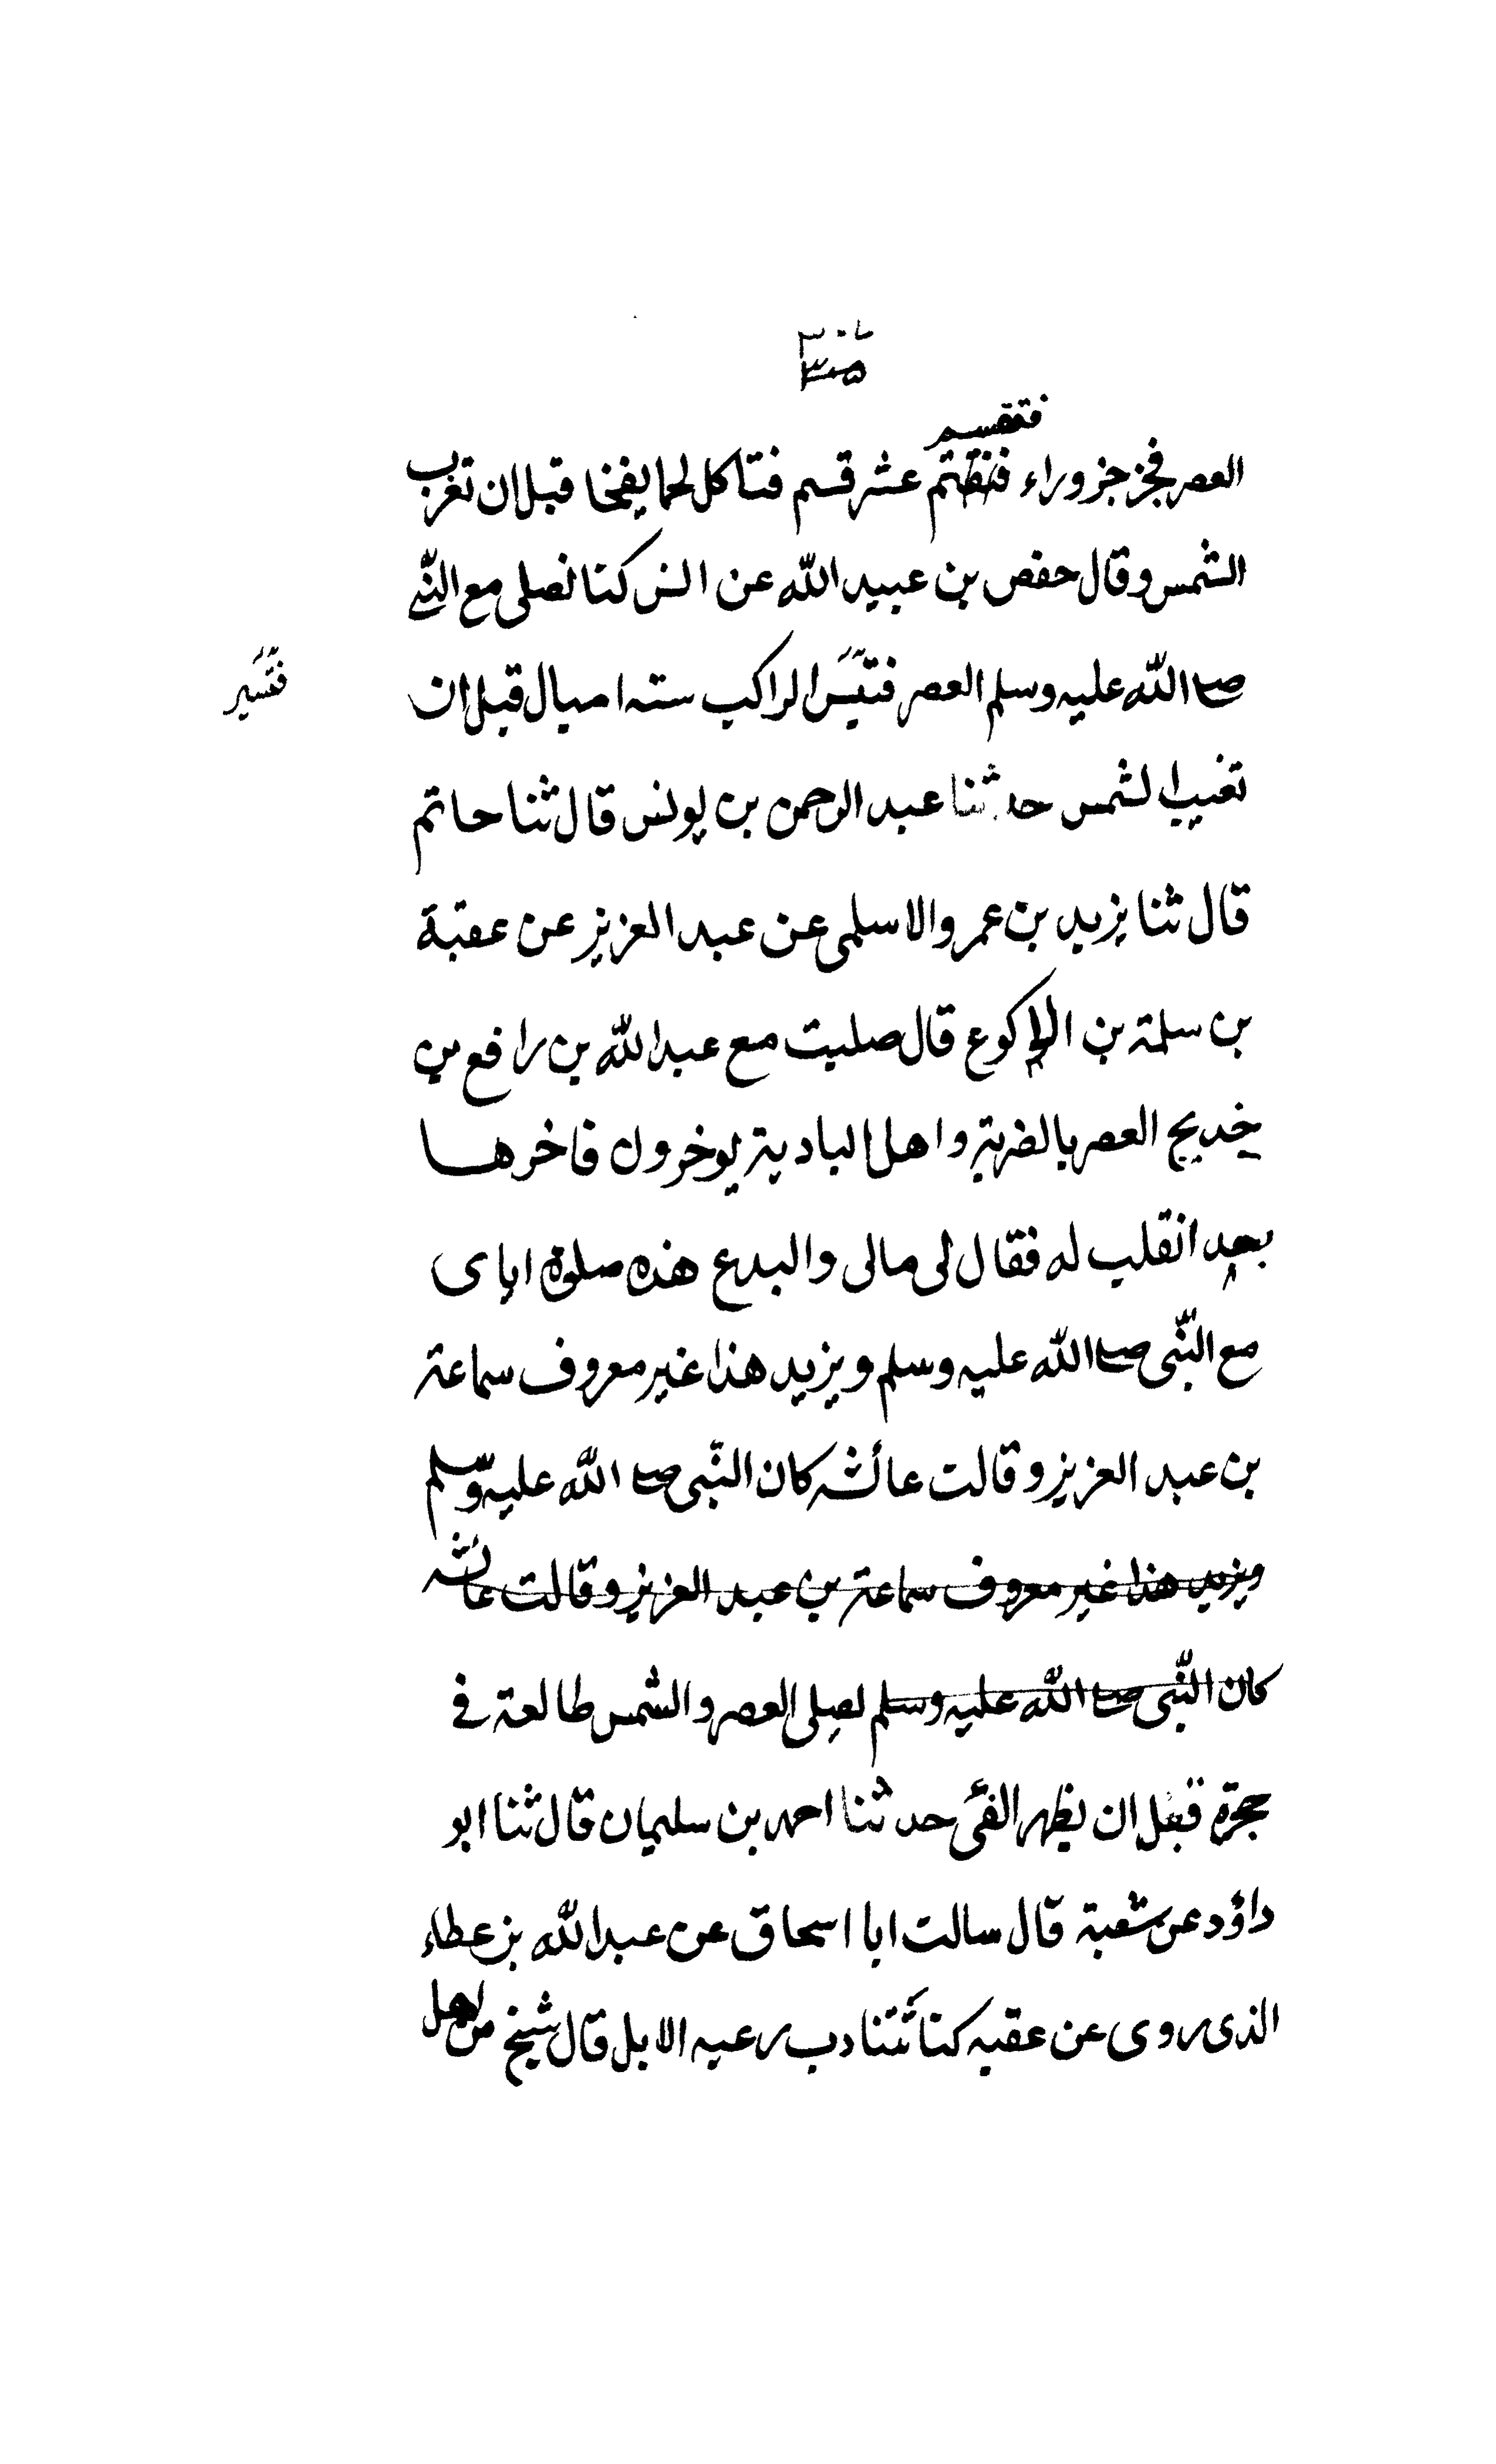 فتقسم
العصر فجز جزوراء فتقتم عشر قسم فتاكل لحما يفخا قبل ان تغرب
الشمس وقال حفص بن عبيد الله عن انس كنا نصلى مع النبى
صلى الله عليه وسلم العصر فتيسر الراكب سته اميال قبل ان
فتسير
تغيب الشمس حدثنا عبد الرحمن بن يونس قال ثنا حاتم
قال ثنا يزيد بن عمرو الاسلمى عن عبد العزيز عن عقبة
بن سلمة بن الاكوع قال صليت مع عبد الله بن رافع بن
خديج العصر بالضرية واهل البادية يوخرون فاخرها
بعد انقلب له فقال لى مالى والبدع هذه صلوة اباى
مع النبى صلى الله عليه وسلم ويزيد هذا غير معروف سماعة
بن عبد العزيز وقالت عائشه كان النبى صلى الله عليه وسلم
ويزيد هذا غير معروف سماعة بن عبد العزيز وقالت عائشه
كان النبى صلى الله عليه وسلم يصلى العصر والشمس طالعة فى
حجرة قبل ان يظهر الفئ حدثنا احمد بن سليمان قال ثنا ابو
داؤد عن شعبة قال سالت ابا اسحاق عن عبد الله بن عطاء
الذى روى عن عقبه كنا نتنادب رعيه الابل قال شيخ من اهل